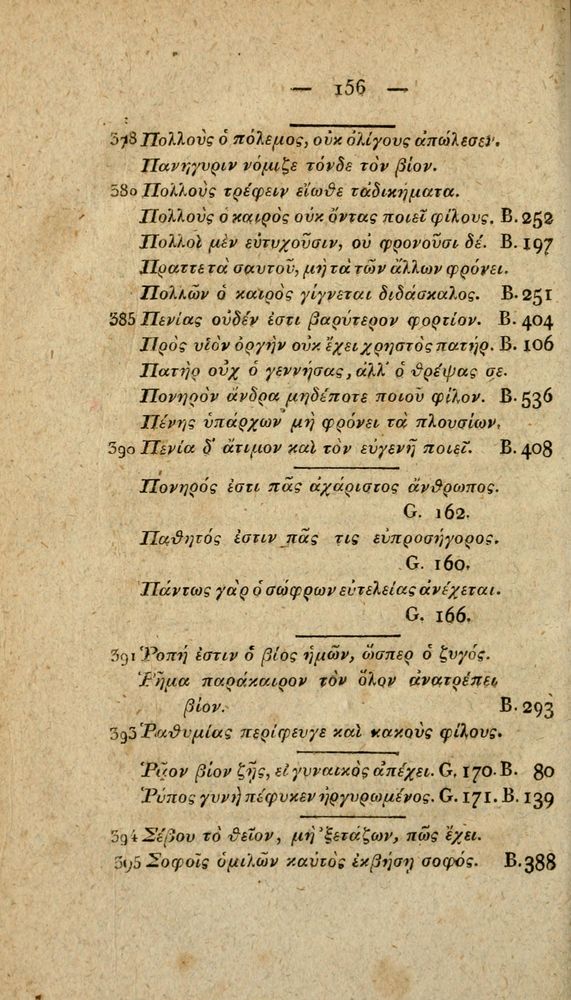 — 156 —
378 Πολλοὺς ὁ πόλεμος, οὐκ ὀλίγους ἀπώλεσεν.
Πανήγυριν νόμιζε τόνδε τὸν βίον.
380 Πολλοὺς τρέφειν εἴωθε τἀδικήματα.
Πολλοὺς ὁ καιρὸς οὐκ ὄντας ποιεῖ φίλους. B. 252
Πολλοὶ μὲν εὐτυχοῦσιν, οὐ φρονοῦσι δέ. B. 197
Πράττε τὰ σαυτοῦ, μὴ τὰ τῶν ἄλλων φρόνει.
Πολλῶν ὁ καιρὸς γίγνεται διδάσκαλος. B. 251
385 Πενίας οὐδέν ἐστι βαρύτερον φορτίον. B. 404
Πρὸς υἱὸν ὀργὴν οὐκ ἔχει χρηστὸς πατήρ. B. 106
Πατὴρ οὐχ ὁ γεννήσας, ἀλλ' ὁ θρέψας σε.
Πονηρὸν ἄνδρα μηδέποτε ποιοῦ φίλον. B. 536
Πένης ὑπάρχων μὴ φρόνει τὰ πλουσίων.
390 Πενία δ' ἄτιμον καὶ τὸν εὐγενῆ ποιεῖ. B. 408
Πονηρός ἐστι πᾶς ἀχάριστος ἄνθρωπος.
G. 162.
Παθητός ἐστιν πᾶς τις εὐπροσήγορος.
G. 160.
Πάντως γὰρ ὁ σώφρων εὐτελείας ἀνέχεται.
G. 166.
391 Ῥοπή ἐστιν ὁ βίος ἡμῶν, ὥσπερ ὁ ζυγός.
Ῥῆμα παράκαιρον τὸν ὅλον ἀνατρέπει
βίον. B. 293
393 Ῥαθυμίας περίφευγε καὶ κακοὺς φίλους.
Ῥᾷον βίον ζῇς, εἰ γυναικὸς ἀπέχει. G. 170. B. 80
Ῥύπος γυνὴ πέφυκεν ἠργυρωμένος. G. 171. B. 139
394 Σέβου τὸ θεῖον, μὴ 'ξετάζων, πῶς ἔχει.
395 Σοφοῖς ὁμιλῶν καὐτὸς ἐκβήσῃ σοφός. B. 388